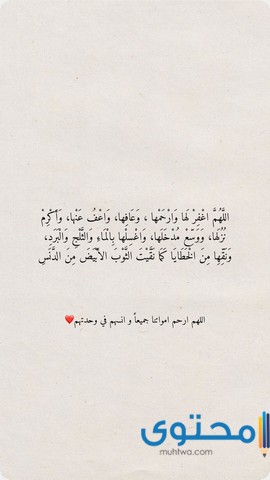 اللَّهُمَّ اغْفِرْ لَها وَارْحَمْها ، وَعَافِها، وَاعْفُ عَنْها، وَأَكْرِمْ
نُزُلَها، وَوَسِّعْ مُدْخَلَها، وَاغْسِلْها بِالْمَاءِ وَالثَّلْجِ وَالْبَرَدِ،
وَنَقِّهِا مِنَ الْخَطَايَا كَمَا نَقَّيْتَ الثَّوْبَ الأَبْيَضَ مِنَ الدَّنَسِ
اللهم ارحم امواتنا جميعاً و انسهم في وحدتهم❤️
محتوى
muhtwa.com